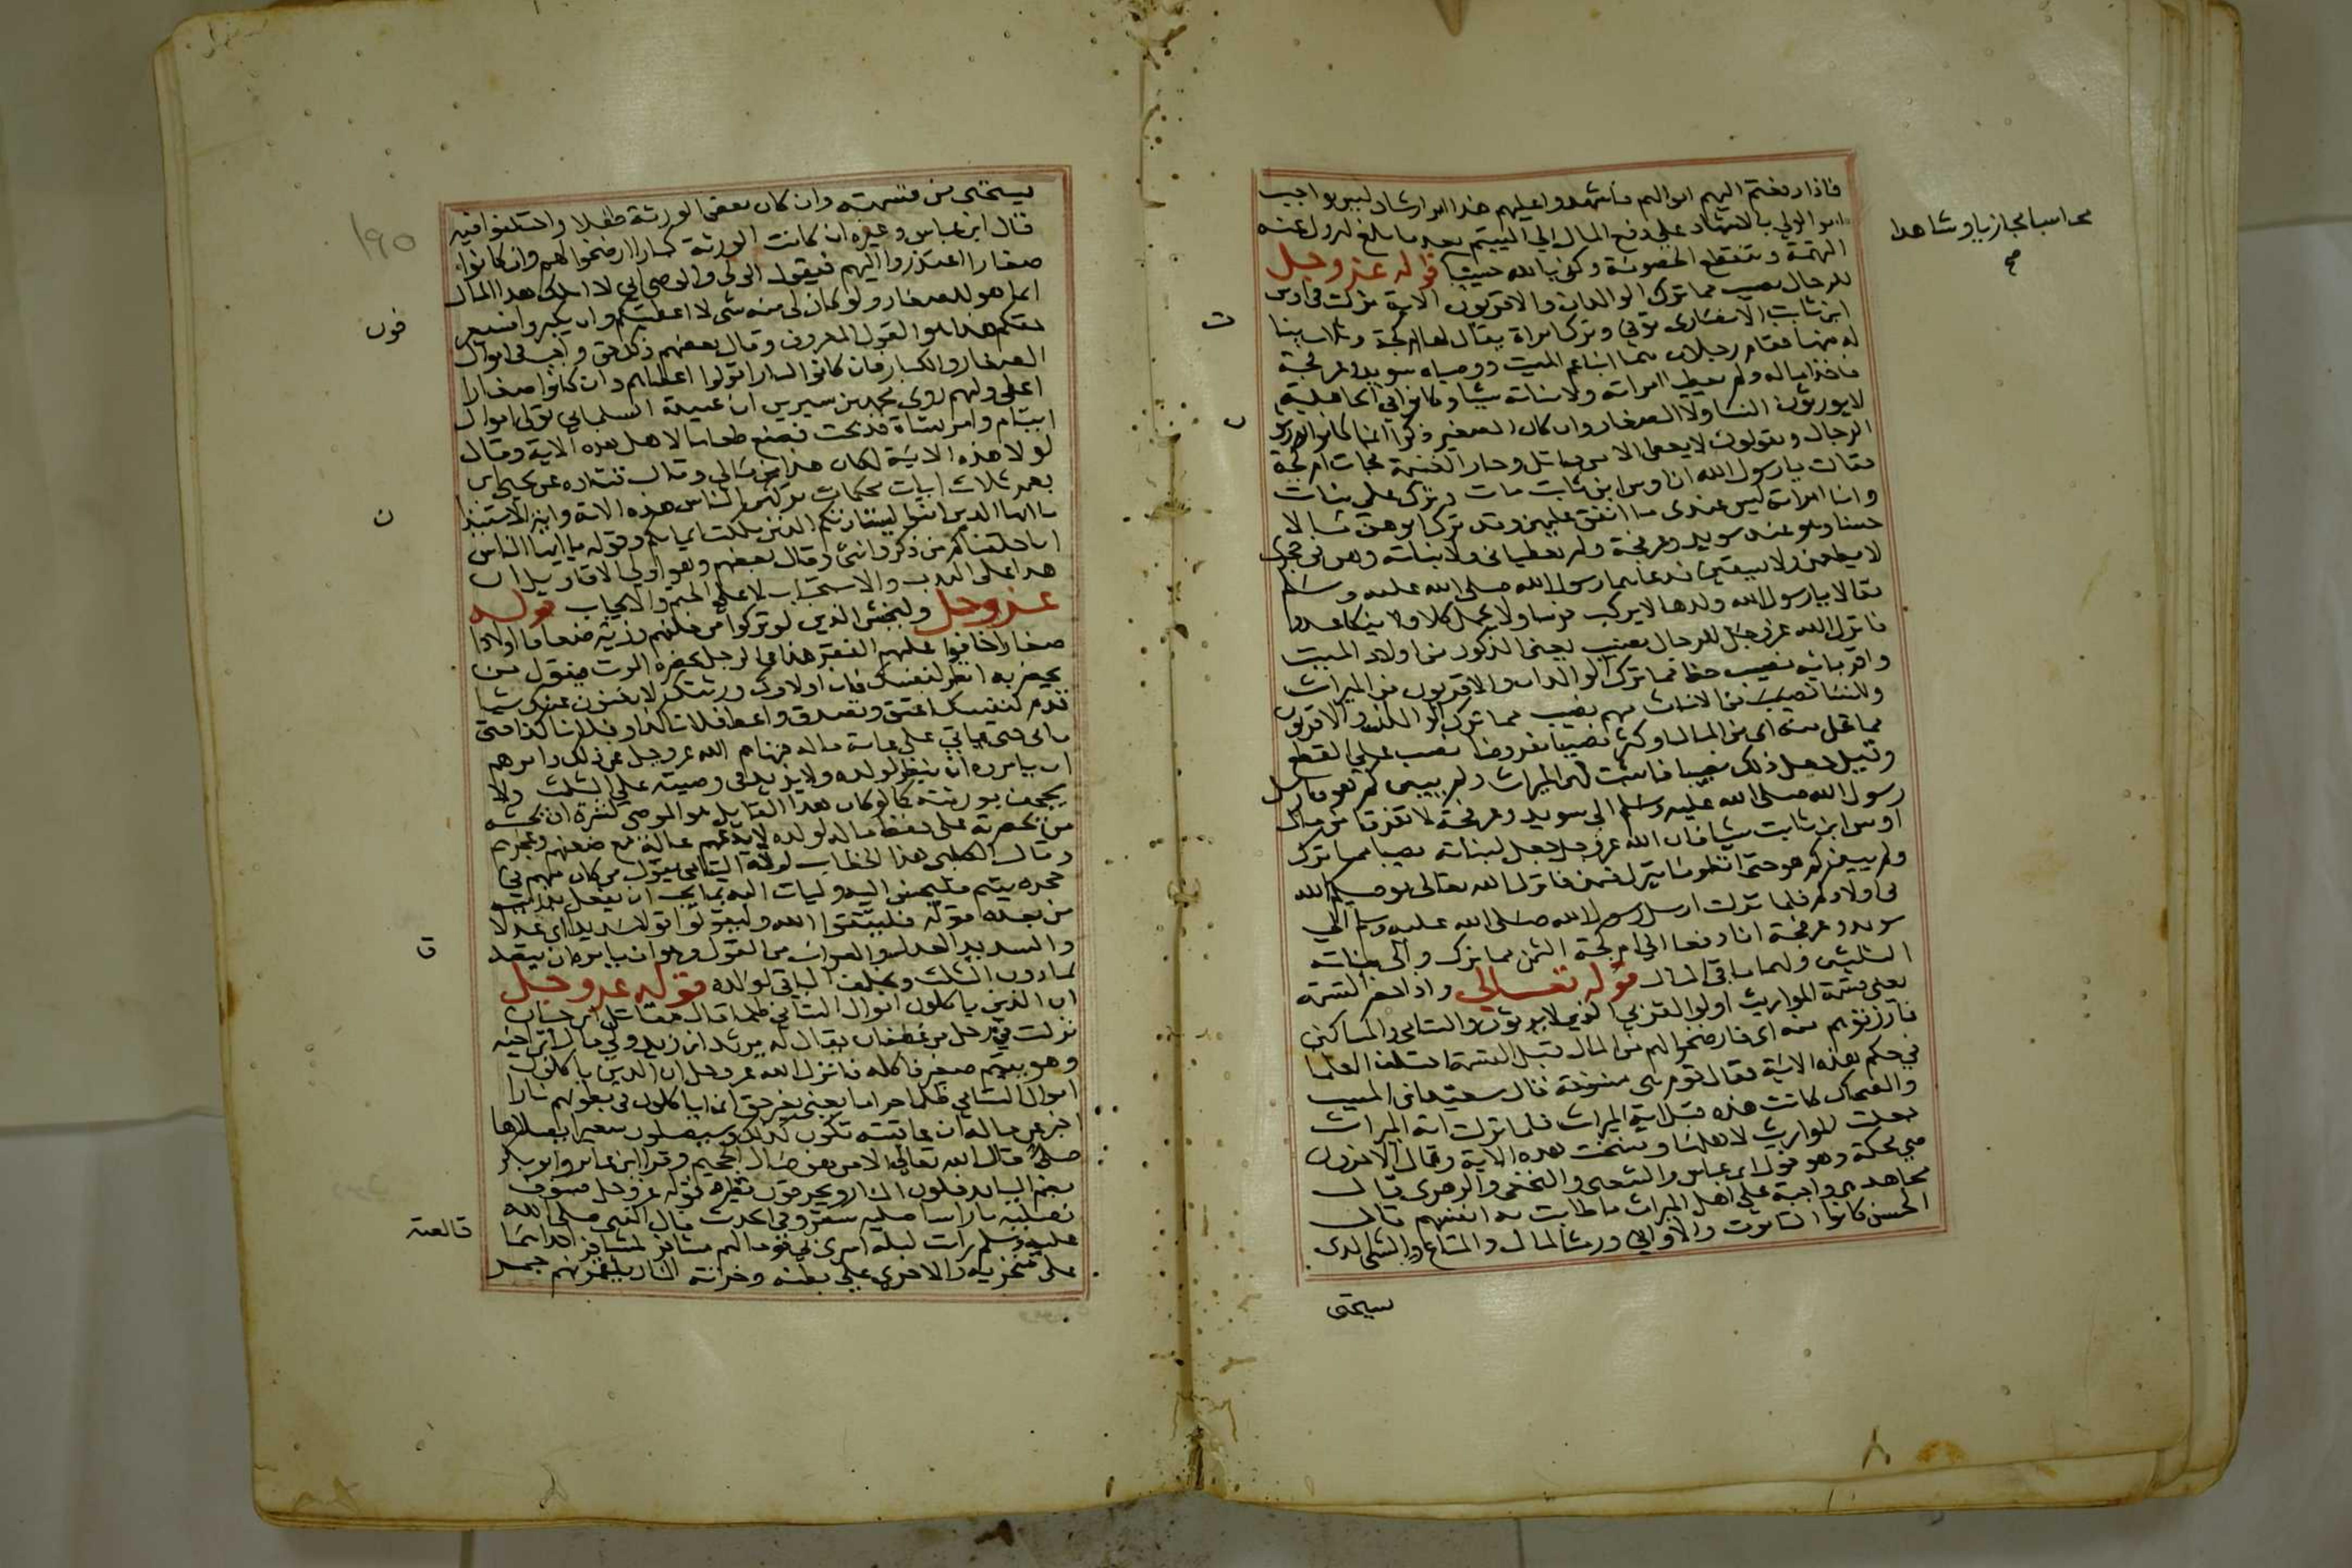 فاذا دفعتم اليهم اموالهم فاشهدوا عليهم هذا امر ارشاد ليس بواجب
امر الولي بالاشهاد علي دفع المال الي اليتيم بعد ما بلغ لتزول عنه
التهمة وتنقطع الخصومة وكفي بالله حسيبا قوله عز وجل
محاسبا مجازيا وشاهدا
صح
للرجال نصيب مما ترك الوالدان والاقربون الاية نزلت في اوس
ابن ثابت الانصاري توفي وترك امراة يقال لها ام كجة وثلاث بنات
له منها فقام رجلان هما ابنا عم الميت ووصياه سويد وعرفجة
فاخذا ماله ولم يعطيا امراته ولا بناته شيا وكانوا في الجاهلية
لا يورثون النسا ولا الصغار وان كان الصغير ذكرا انما كانوا يورثون
الرجال ويقولون لا يعطى الا من قاتل وحاز الغنيمة فجات ام كجة
فقالت يا رسول الله ان اوس ابن ثابت مات وترك علي بنات
وانا امراته ليس عندي ما انفق عليهن وقد ترك ابوهن مالا
حسنا وهو عند سويد وعرفجة ولم يعطياني ولا بناته وهن في حجري
لا يطعمن ولا يسقين فدعاهما رسول الله صلى الله عليه وسلم
فقالا يا رسول الله ولدها لا يركب فرسا ولا يحمل كلا ولا ينكا عدوا
فانزل الله عز وجل للرجال نصيب يعني الذكور من اولاد الميت
واقربائه نصيب حظ مما ترك الوالدان والاقربون من الميراث
وللنسا نصيب من الاناث منهم نصيب مما ترك الوالدان والاقربون
مما قل منه اي من المال او كثر نصيبا مفروضا نصب على القطع
وقيل جعل ذلك نصيبا فاثبت لهن الميراث ولم يبين كم هو فارسل
رسول الله صلى الله عليه وسلم الى سويد وعرفجة لا تفرقا من مال
اوس ابن ثابت شيا فان الله عز وجل جعل لبناته نصيبا مما ترك
ولم يبين كم هو حتى انظر ما ينزل فيهن فانزل الله تعالى يوصيكم الله
في اولادكم فلما نزلت ارسل رسول الله صلى الله عليه وسلم الي
سويد وعرفجة ان ادفعا الي ام كجة الثمن مما ترك والي بناته
الثلثين ولكما باقي المال قوله تعالى واذا حضر القسمة
يعني قسمة المواريث اولوا القربى الذين لا يرثون واليتامى والمساكين
فارزقوهم منه اي فارضخوا لهم من المال قبل القسمة اختلف العلما
في حكم هذه الاية فقال قوم هي منسوخة قال سعيد بن المسيب
والضحاك كانت هذه قبل اية الميراث فلما نزلت اية الميراث
جعلت المواريث لاهلها ونسخت هذه الاية وقال الاخرون
هي محكمة وهو قول ابن عباس والشعبي والنخعي والزهري قال
مجاهد هي واجبة على اهل الميراث ما طابت به انفسهم قال
الحسن كانوا يعطون التابوت والاواني ورث المال والمتاع والشي الذي
سيحتى
يستحى من قسمته وان كان بعض الورثة طفلا واختلفوا فيه
قال ابن عباس وغيره ان كانت الورثة كبارا رضخوا لهم وان كانوا
صغارا اعتذروا اليهم فيقول الولي والوصي اني لا املك هذا المال
انما هو للصغار ولو كان لي منه شي لا اعطيتكم وان يكبروا فسيعرفون
حقكم هذا هو القول المعروف وقال بعضهم ذلك حق واجب في اموال
الصغار والكبار فان كانوا كبارا تولوا اعطاهم وان كانوا صغارا
اعطى وليهم روى محمد بن سيرين ان عبيدة السلماني تولى اموال
ايتام وامر بشاة فذبحت فصنع طعاما لاهل هذه الاية وقال
لولا هذه الاية لكان هذا من مالي وقال قتادة عن يحيى ابن
يعمر ثلاث ايات محكمات تركهن الناس هذه الاية واية الاستيذان
يا ايها الذين امنوا ليستاذنكم الذين ملكت ايمانكم وقوله يا ايها الناس
انا خلقناكم من ذكر وانثى وقال بعضهم وهو اولى الاقاويل ان
هذا على الندب والاستحباب لا على الحتم والايجاب قوله
عز وجل وليخش الذين لو تركوا من خلفهم ذرية ضعافا اولادا
صغارا خافوا عليهم الفقر هذا في الرجل يحضره الموت فيقول من
بحضرته انظر لنفسك فان اولادك وورثتك لا يغنون عنك شيا
قدم لنفسك اعتق وتصدق واعط فلانا كذا وفلانا كذا حتى
ياتي على عامة ماله فنهاهم الله عز وجل عن ذلك وامرهم
ان يامروه ان ينظر لولده ولا يزيد في وصيته على الثلث ولا
يجحف بورثته كما لو كان هذا القايل هو الموصي لسره ان يحثه
من بحضرته على حفظ ماله لولده لا يدعهم عالة مع ضعفهم وعجزهم
وقال الكلبي هذا الخطاب لولاة اليتامى يقول من كان منهم في
حجره يتيم فليحسن اليه وليات اليه بما يحب ان يفعل بذريته
من بعده قوله فليتقوا الله وليقولوا قولا سديدا اي عدلا
والسديد العدل والصواب من القول وهو ان يامره ان يتصدق
بما دون الثلث ويخلف الباقي لولده قوله عز وجل
ان الذين ياكلون اموال اليتامى ظلما قال مقاتل ابن حيان
نزلت في رجل من غطفان يقال له مرثد ابن زيد ولي مال ابن اخيه
وهو يتيم صغير فاكله فانزل الله عز وجل ان الذين ياكلون
اموال اليتامى ظلما حراما بغير حق انما ياكلون في بطونهم نارا
اخبر عن ماله ان عاقبته تكون كذلك وسيصلون سعيرا بصلاها
صلي قال الله تعالى الا من هو صال الجحيم وقرا ابن عامر وابو بكر
بضم اليا يدخلون النار ويحرقون نظيره قوله عز وجل فسوف
نصليه نارا سا صليه سقر وفي الحديث قال النبي صلى الله
عليه وسلم رايت ليلة اسري بي قوما لهم مشافر كمشافر الابل احداهما
قالصة
على منخريه والاخرى على بطنه وخزنة النار يلقمونهم جمر
١٩٥